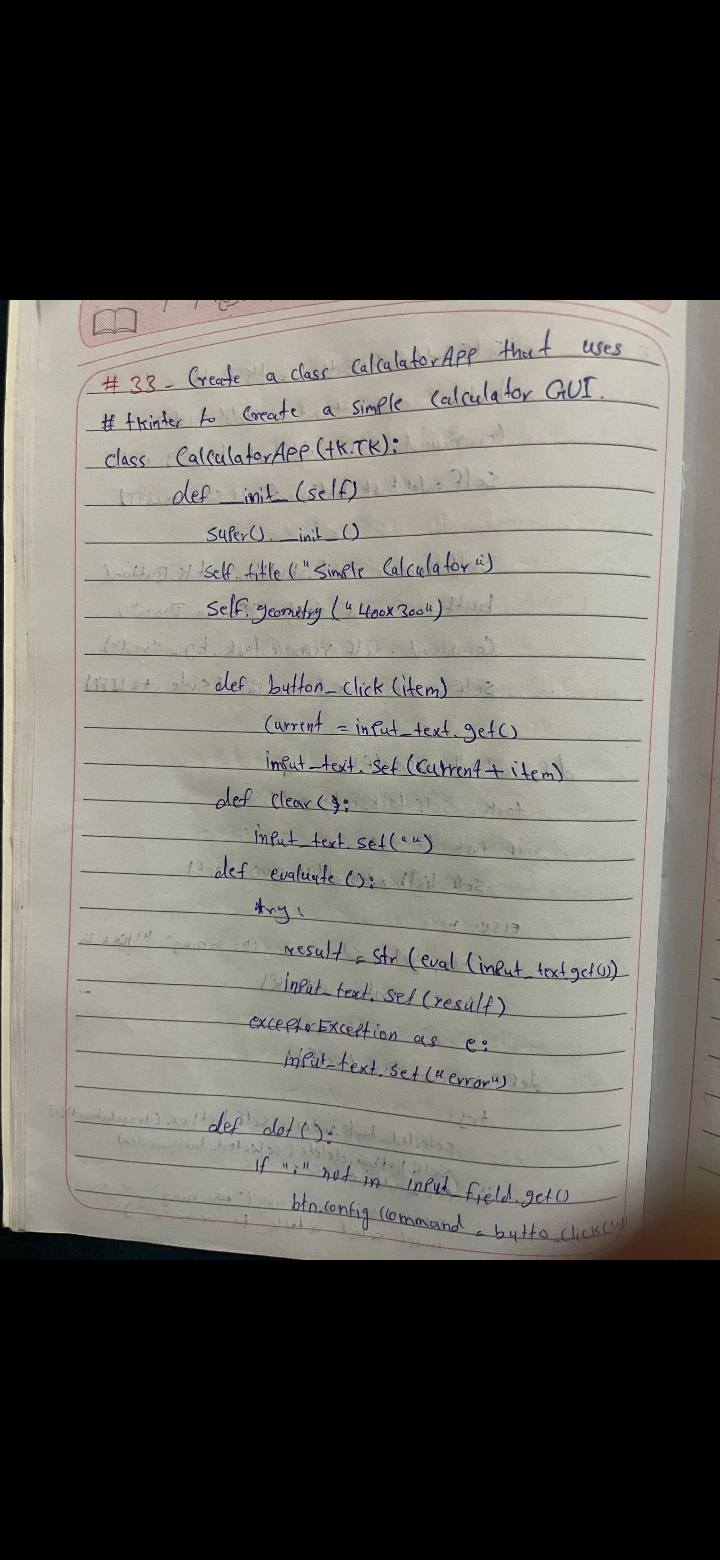 # 33 - Create a class CalculatorApp that uses
# tkinter to Create a simple Calculator GUI.
class CalculatorApp(tk.TK):
def _init_ (self)
super()._init_()
self.title("Simple Calculator")
self.geometry("400x300")
def button_click (item)
Current = input_text.get()
input_text.set(Current + item)
def clear():
input_text.set("")
def evaluate():
try:
result = str (eval (input_text.get())
input_text.set(result)
except Exception as e:
input_text.set("error")
def dot():
if "." not in input_field.get()
btn.config(Command = butto click(